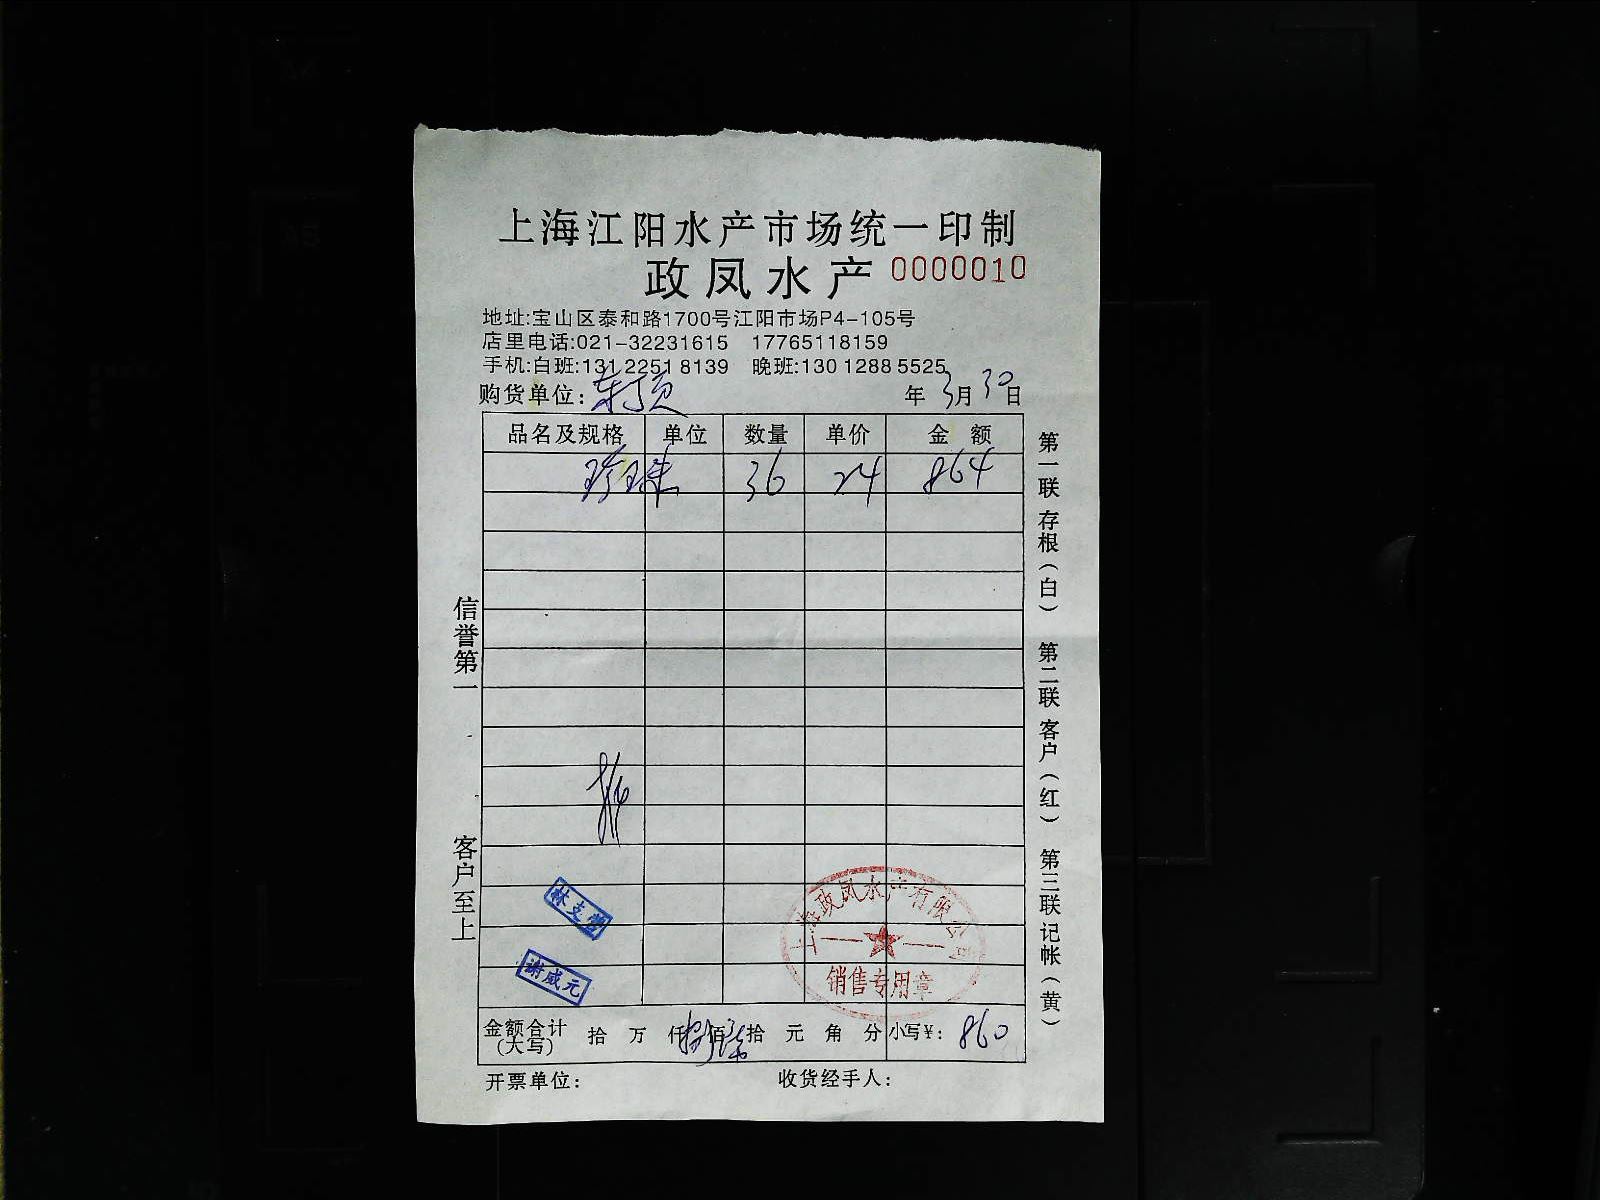 上海江阳水产市场统一印制
政凤水产 0000010
地址:宝山区泰和路1700号江阳市场P4-105号
店里电话:021-32231615 17765118159
手机:白班:131 2251 8139 晚班:130 1288 5525
购货单位: 年 3月 30日
品名及规格 单位 数量 单价 金 额
珍珠 36 24 864
信誉第一
客户至上
第一联 存根(白) 第二联 客户(红) 第三联 记帐(黄)
林支
谢咸元
上海政凤水产有限公司
销售专用章
金额合计 (大写) 拾 万 仟 捌佰 陆拾 元 角 分 小写¥: 860
开票单位: 收货经手人: